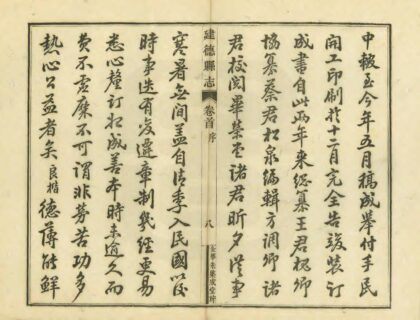 中輟至今年五月稿成舉付手民
開工印刷於十二月完全告竣裝訂
成書自此兩年來總纂王君槐卿
協纂蔡君松泉編輯方調卿諸
君校閱畢榮堂諸君昕夕從事
建德縣志
卷首 序
八
金華朱集成堂印
寒暑無間蓋自清季入民國後
時事迭有變遷章制幾經更易
悉心釐訂成善本時未逾久而
費不虛糜不可謂非勞苦功多
熱心公益者矣良楷德薄能鮮